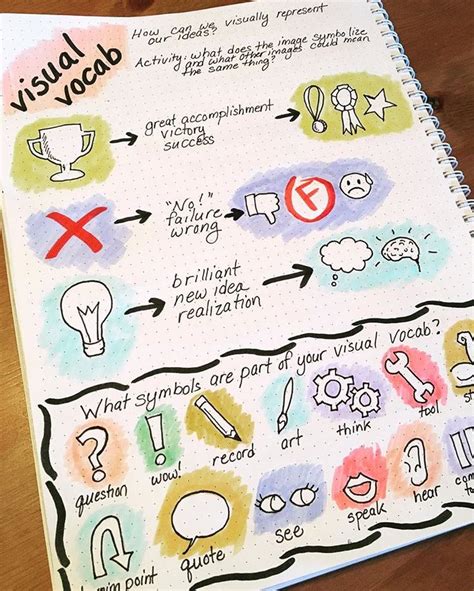 visual
vocab
How can we visually represent
our ideas?
Activity: what does the image symbolize
and what other images could mean
the same thing?
great accomplishment
victory
success
"No!"
failure
wrong
F
brilliant
new idea
realization
What symbols are part of your visual vocab?
question
wow!
record
art
think
tool
point
quote
see
speak
hear